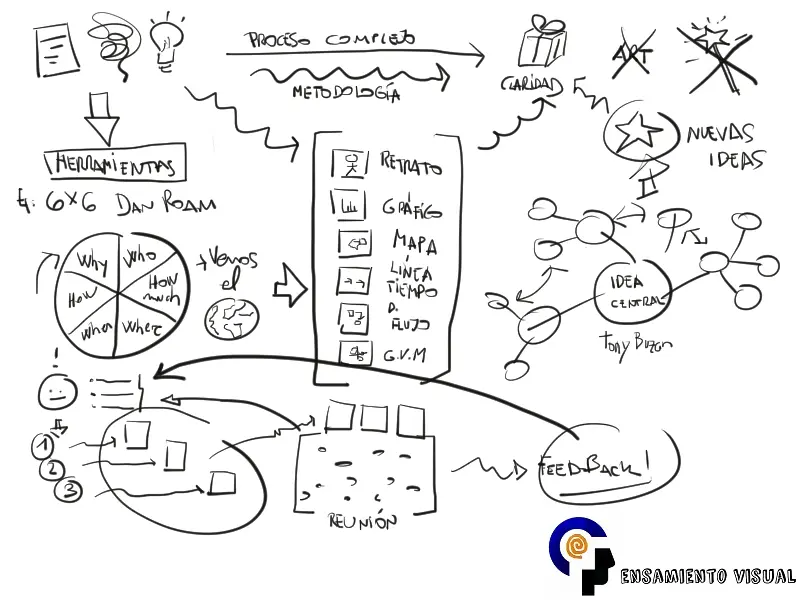 PROCESO COMPLEJO
METODOLOGÍA
CLARIDAD
ART
HERRAMIENTAS
Ej: 6x6 DAN ROAM
Why
Who
How
much
Where
When
How
+Vemos
el
RETRATO
GRÁFICO
MAPA
LÍNEA
TIEMPO
D.
FLUJO
G.V.M
NUEVAS
IDEAS
IDEA
CENTRAL
Tony Buzan
!
1
2
3
REUNIÓN
FEEDBACK!
PENSAMIENTO VISUAL